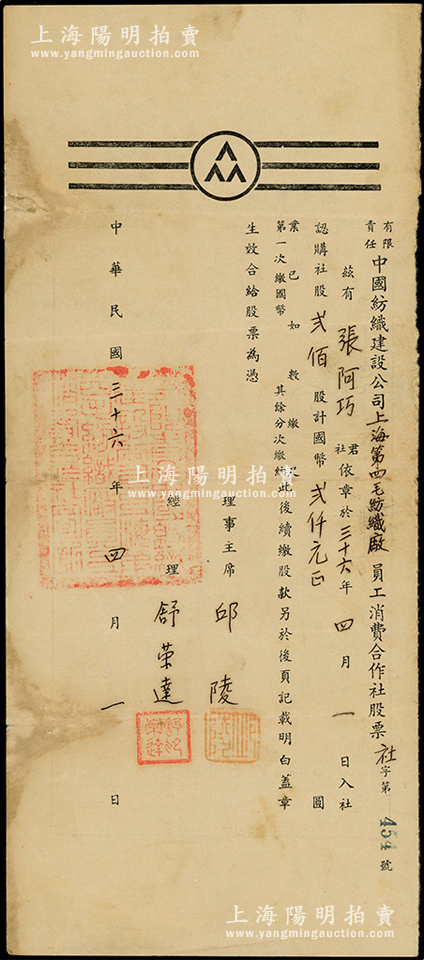 上海陽明拍賣
www.yangmingauction.com
有限責任中國紡織建設公司上海第四毛紡織廠員工消費合作社股票社字第454號
茲有張阿巧君社依章於三十六年四月一日入社
認購社股貳佰股計國幣貳仟元正圓
業已如數繳足
第一次繳國幣 其餘分次繳納此後續繳股款另於後頁記載明白蓋章
生效合給股票為憑
理事主席邱陵
經理舒榮達
中華民國三十六年四月一日
上海陽明拍賣
www.yangmingauction.com
上海陽明拍賣
www.yangmingauction.com